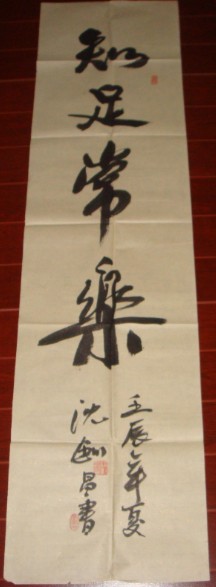 知足常樂
壬辰年夏
沈鉚昌書